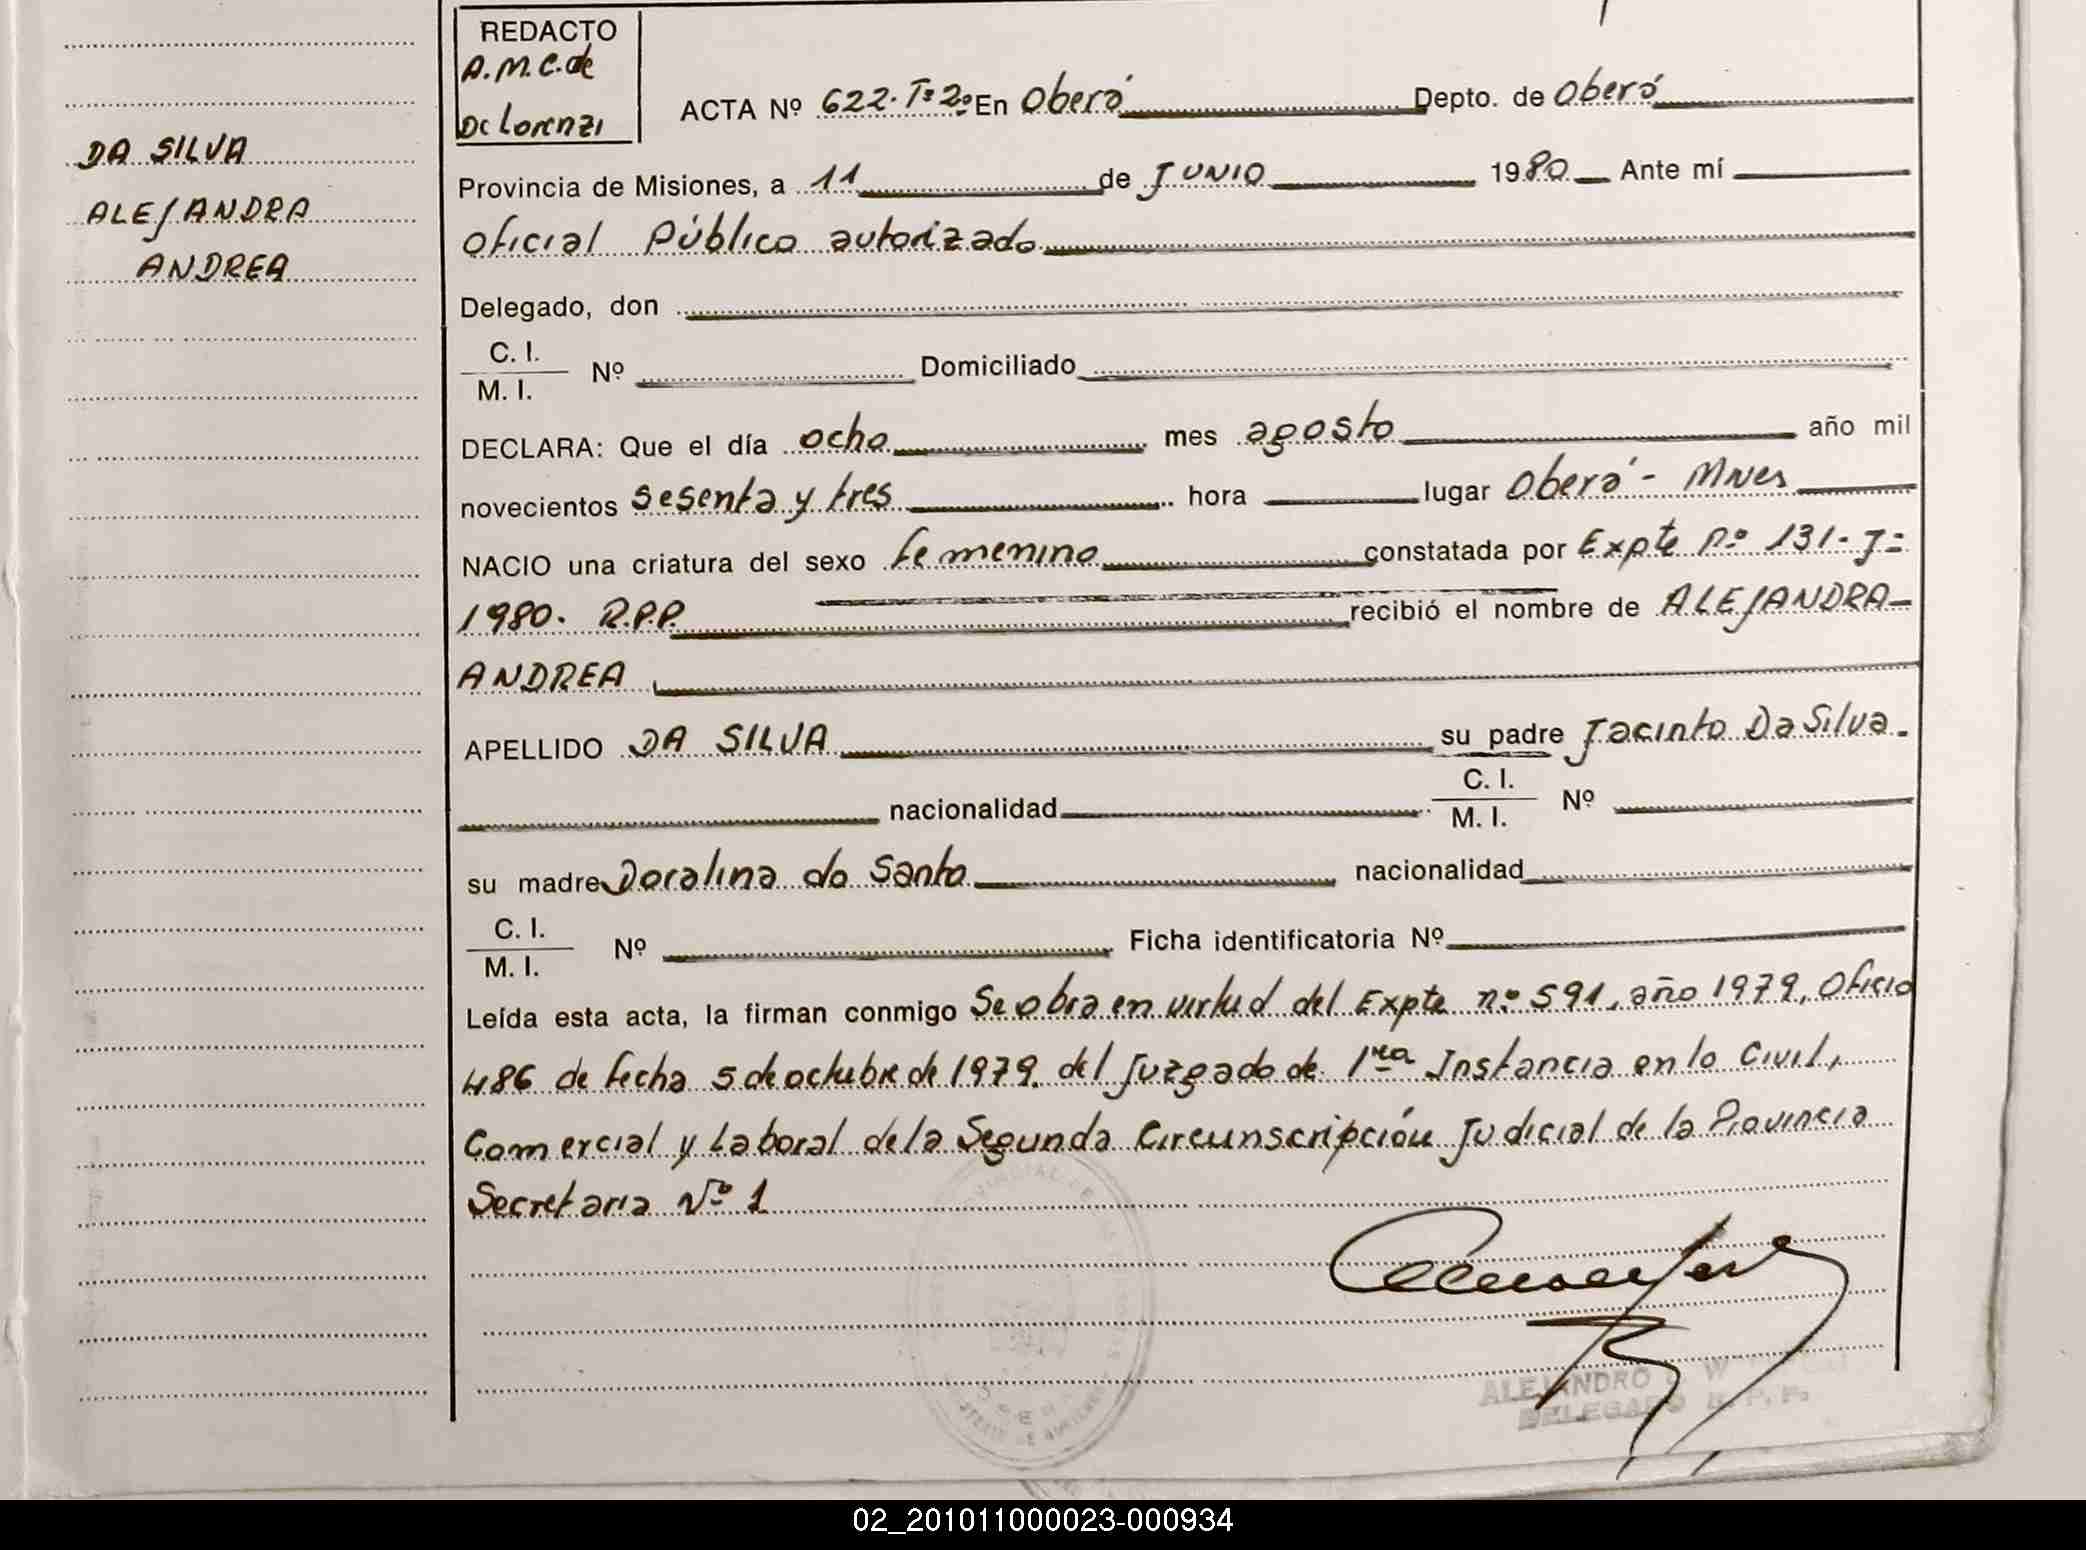 REDACTO
A.M.C. de
De Lorenzi
DA SILVA
ALEJANDRA
ANDREA
ACTA Nº 622. Tº 2º En Oberá Depto. de Oberá
Provincia de Misiones, a 11 de JUNIO 1980 Ante mí
Oficial Público autorizado
Delegado, don
C. I.
M. I. Nº Domiciliado
DECLARA: Que el día ocho mes agosto año mil
novecientos sesenta y tres hora lugar Oberá - Mnes
NACIO una criatura del sexo femenino constatada por Expte nº 131-J-
1980. R.P.P. recibió el nombre de ALEJANDRA-
ANDREA
APELLIDO DA SILVA su padre Jacinto Da Silva.
nacionalidad C. I.
M. I. Nº
su madre Doralina do Santo nacionalidad
C. I.
M. I. Nº Ficha identificatoria Nº
Leída esta acta, la firman conmigo Se obra en virtud del Expte nº 591, año 1979, Oficio
486 de fecha 5 de octubre de 1979. del Juzgado de 1ra Instancia en lo Civil,
Comercial y Laboral de la Segunda Circunscripción Judicial de la Provincia
Secretaria Nº 1
ALEJANDRO
DELEGADO R.P.P.
02_201011000023-000934